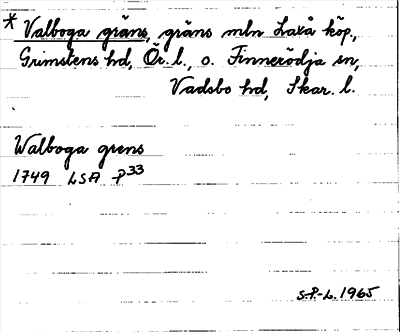 * Valboga gräns, gräns mln Laxå köp.,
Grimstens hd, Ör. l., o. Finnerödja sn,
Vadsbo hd, Skar. l.
Walboga grens
1749 LSA P33
S.P.-L. 1965